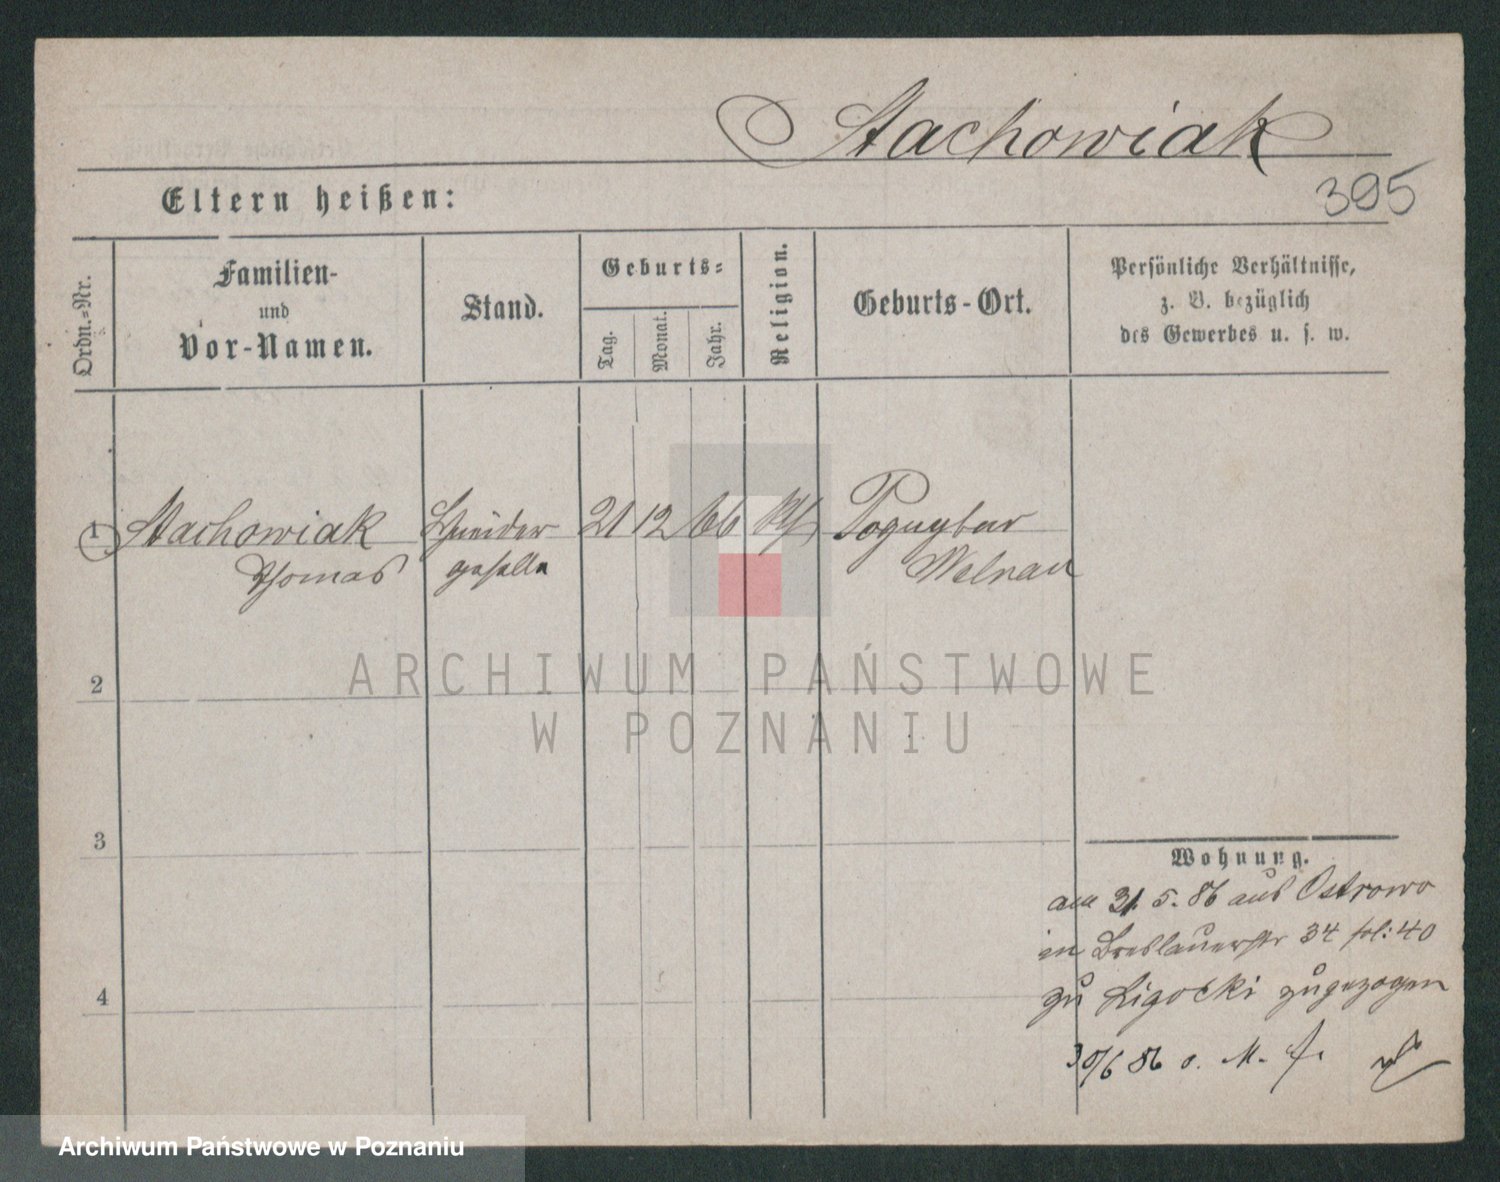 Stachowiak
395
Eltern heißen:
Ordn.-Nr.
Familien-
und
Vor-Namen.
Stand.
Geburts-
Tag.
Monat.
Jahr.
Religion.
Geburts-Ort.
Persönliche Verhältnisse,
z. B. bezüglich
des Gewerbes u. s. w.
1 Stachowiak Schneider 21 12 66
Thomas geselle Welnau
2
ARCHIWUM PAŃSTWOWE
W POZNANIU
3
4
Wohnung.
am 31. 5. 86 aus Ostrowo
in Breslauerstr 34 fol: 40
zu Ligocki zugezogen
30/6 86 o. M. f.
Archiwum Państwowe w Poznaniu